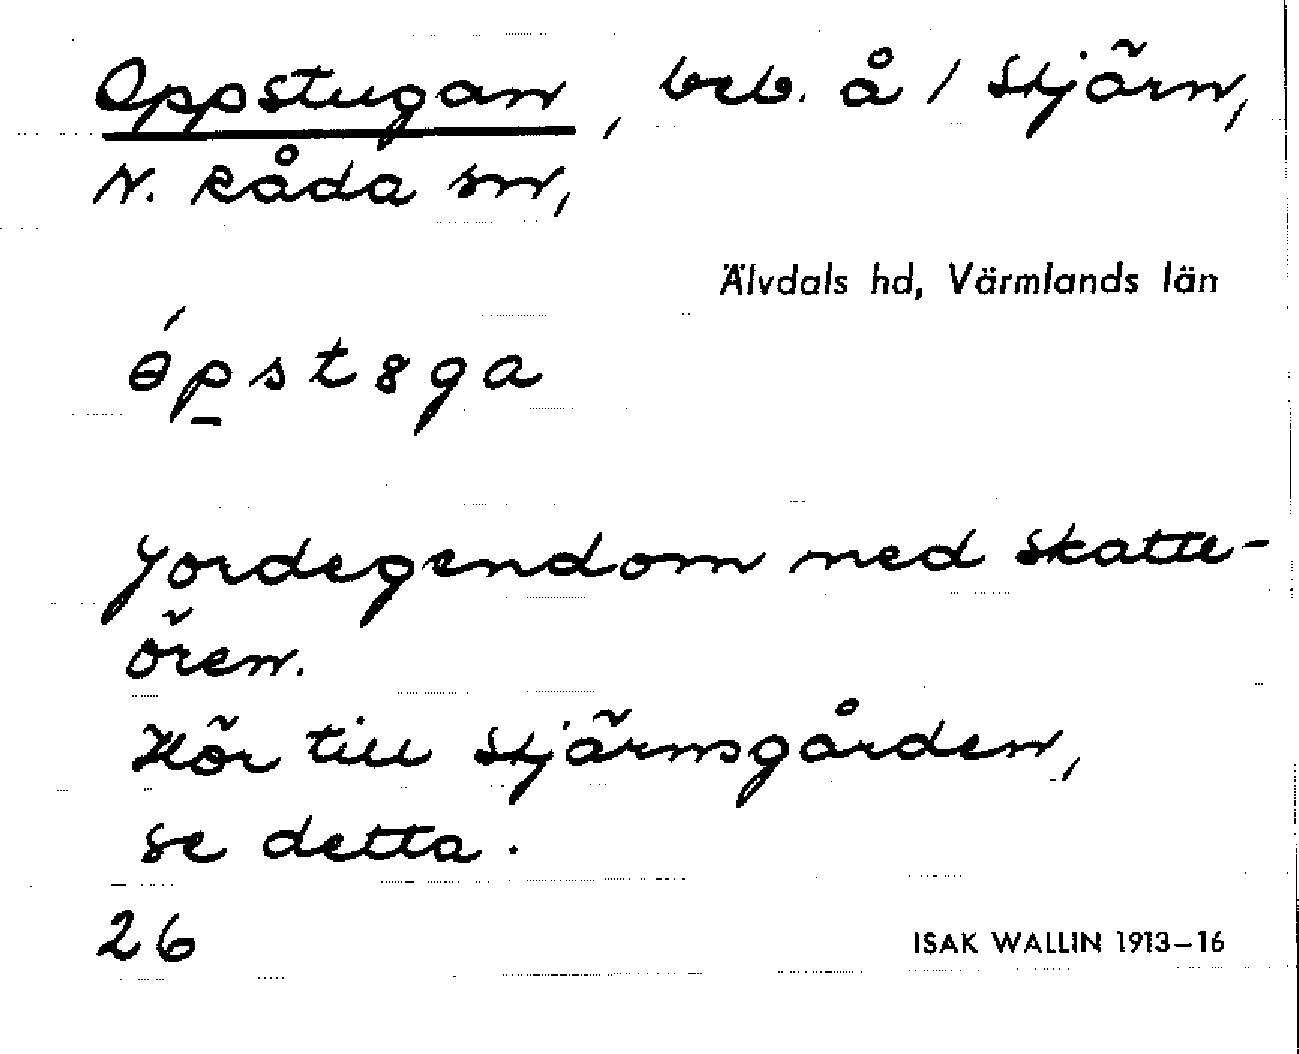 Oppstugan, beb. å 1 Stjärn,
N. Råda sn,
Älvdals hd, Värmlands län
ɵ́p̠st8ga
Jordegendom med skatte-
ören.
Hör till Stjärnsgården,
se detta.
26
ISAK WALLIN 1913–16